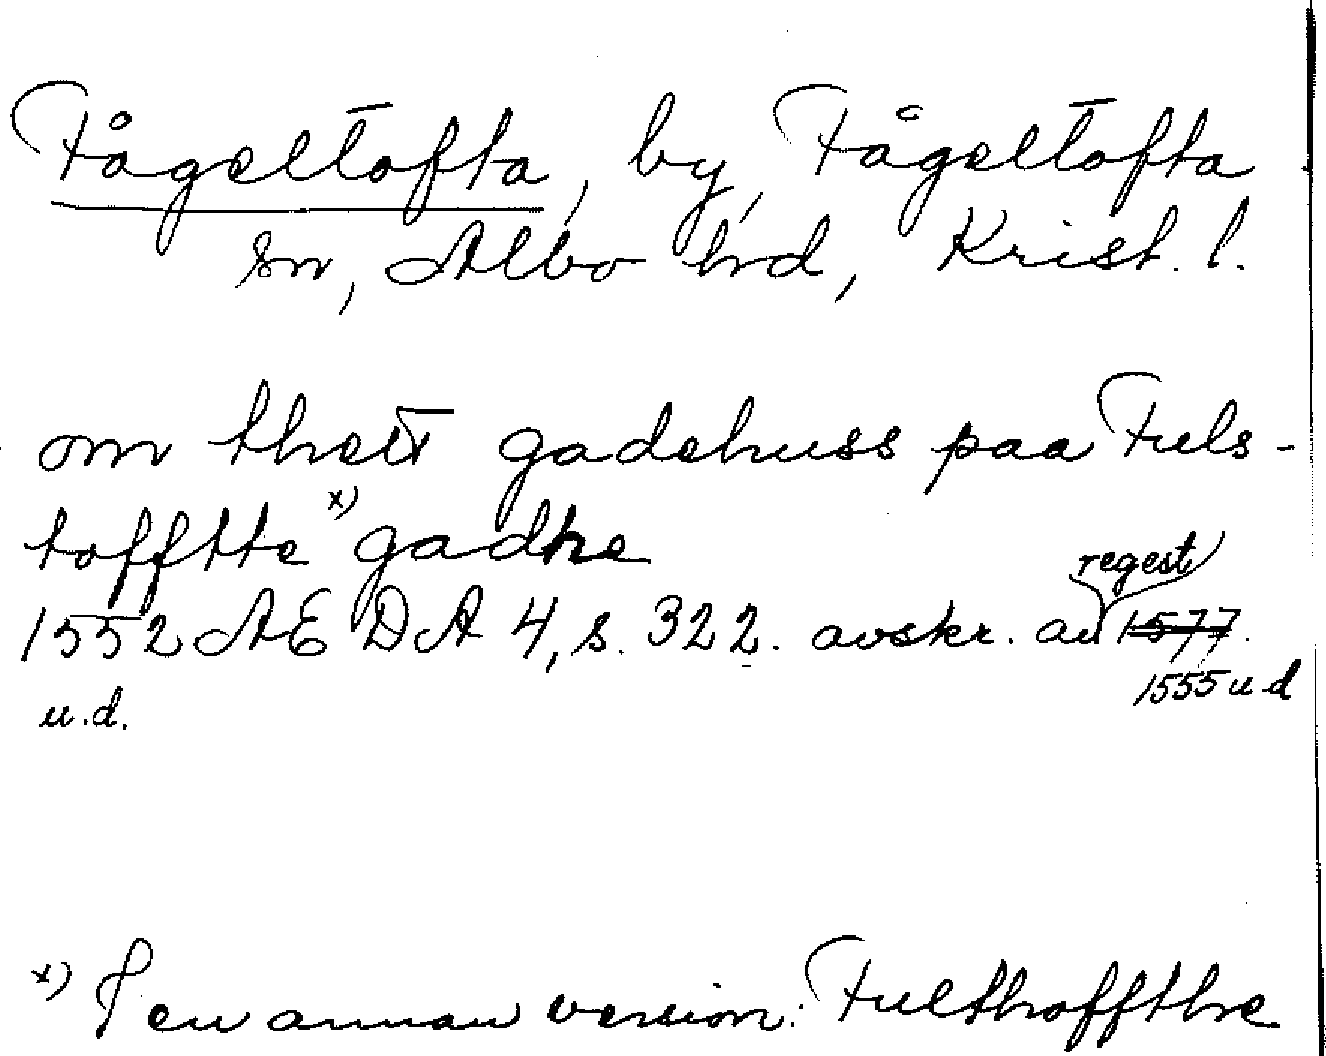 Fågeltofta, by, Fågeltofta
sn, Albo hrd, Krist. l.
om thett gadehuss paa Fuls-
tofftte x) gadhe
regest
1552 AEDA 4, s. 322. avskr. av 1577.
u.d.
1555 u.d
x) I en annan version: Fulthoffthe